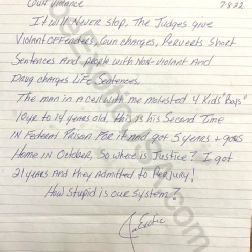 Gun Violance 7-8-22
It will Never stop, The Judges give
Violant Offenders, Gun charges, Perverts Short
Sentences And people with Non-violent And
Drug charges Life Sentences.
The man in a Cell with me molested 4 Kids "Boys"
10yr to 14 years old. this is his Second Time
in Federal Prison For it and got 5 years + goes
Home in October, So where is Justice? I got
21 years and they Admitted to Perjury!
How Stupid is our System?
Joe Exotic